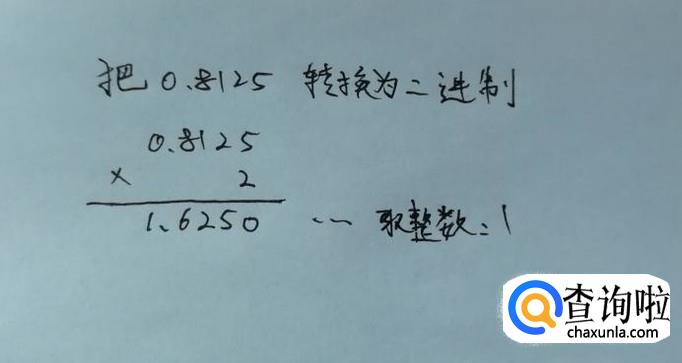 把 0.8125 转换为二进制
0.8125
× 2
1.6250 ... 取整数:1
查询啦
chaxunla.com